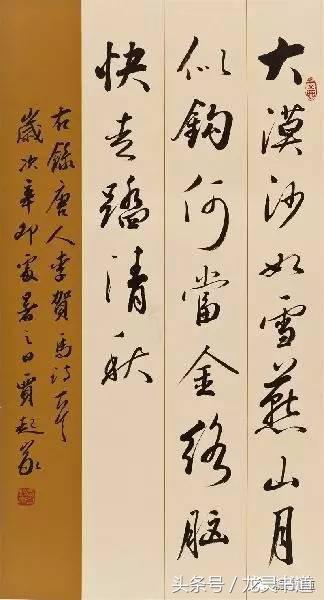 大漠沙如雪燕山月
似鈎何當金絡腦
快走踏清秋
右錄唐人李賀馬詩一首
歲次辛卯處暑之日賈起家
头条号/龙灵书道